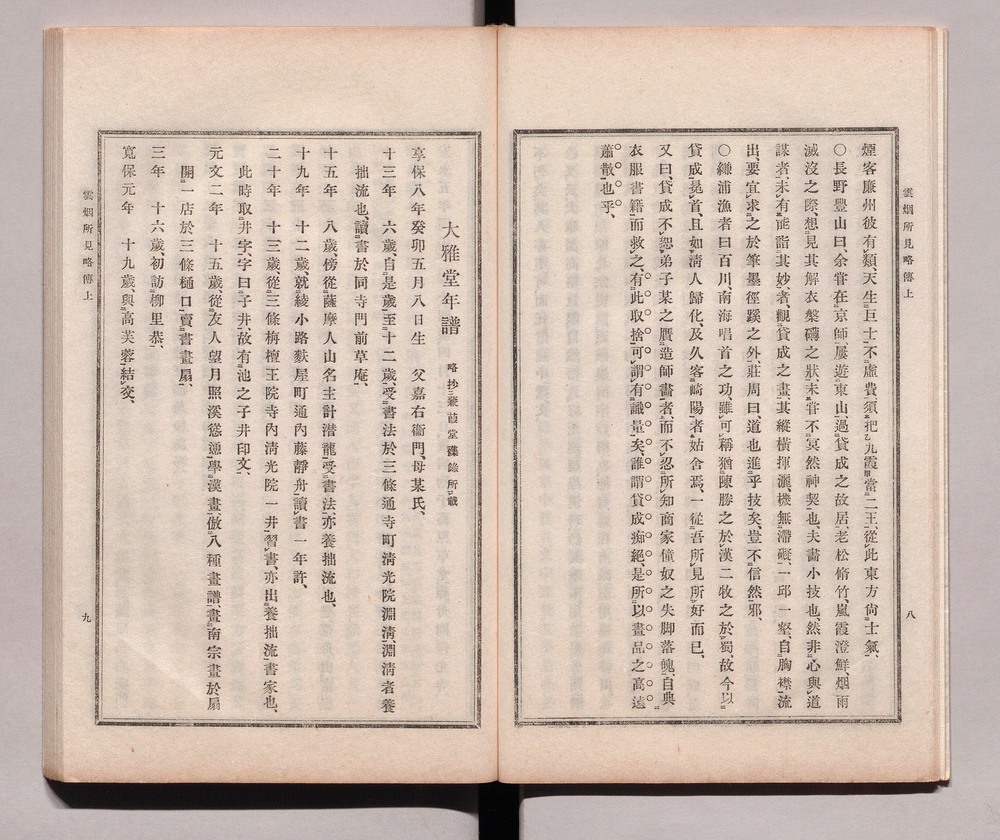 雲烟所見略傳上
煙客廉州彼有類、天生巨士不虛費、須把九霞當二王、從此東方尙士氣、
〇長野豐山曰、余甞在京師、屢遊東山、過貸成之故居、老松脩竹、嵐霞澄鮮、烟雨
滅沒之際、想見其解衣槃礴之狀、未甞不冥然神契也、夫畫小技也、然非心與道
謀者、未有能詣其妙者、觀貸成之畫、其縱橫揮灑、機無滯礙、一邱一壑、自胸襟流
出、要宜求之於筆墨徑蹊之外、莊周曰、道也進乎技矣、豈不信然邪、
〇鎌浦漁者曰、百川、南海唱首之功、雖可稱、猶陳勝之於漢、二牧之於蜀、故今以
貸成晁首、且如淸人歸化、及久客崎陽者、姑舍焉、一從吾所見所好而已、
又曰、貸成不恕弟子某之贋造師畫者、而不忍所知商家僮奴之失脚落魄、自典
衣服書籍而救之、有此取捨、可謂有識量矣、誰謂貸成痴絕、是所以畫品之高遠
蕭散也乎、
八
大雅堂年譜 略抄蒹葭堂雜錄所載
享保八年癸卯五月八日生 父嘉右衞門、母某氏、
十三年 六歲、自是歲至十二歲、受書法於三條通寺町淸光院淵淸、淵淸者養
拙流也、讀書於同寺門前草庵、
十五年 八歲、傍從薩摩人山名主計潛龍受書法、亦養拙流也、
十九年 十二歲、就綾小路麩屋町通內藤靜舟讀書一年許、
二十年 十三歲、從三條栴檀王院寺內淸光院一井習書、亦出養拙流書家也、
此時取井字、字曰子井、故有池之子井印文、
元文二年 十五歲、從友人望月照溪慫慂學漢畫、倣八種畫譜、畫南宗畫於扇
開一店於三條樋口賣書畫扇、
三年 十六歲、初訪柳里恭、
寬保元年 十九歲、與高芙蓉結交、
雲烟所見略傳上
九